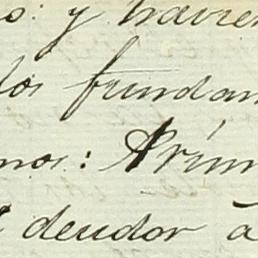 s: y travie
los fundam
mos: Prim
t deudor á